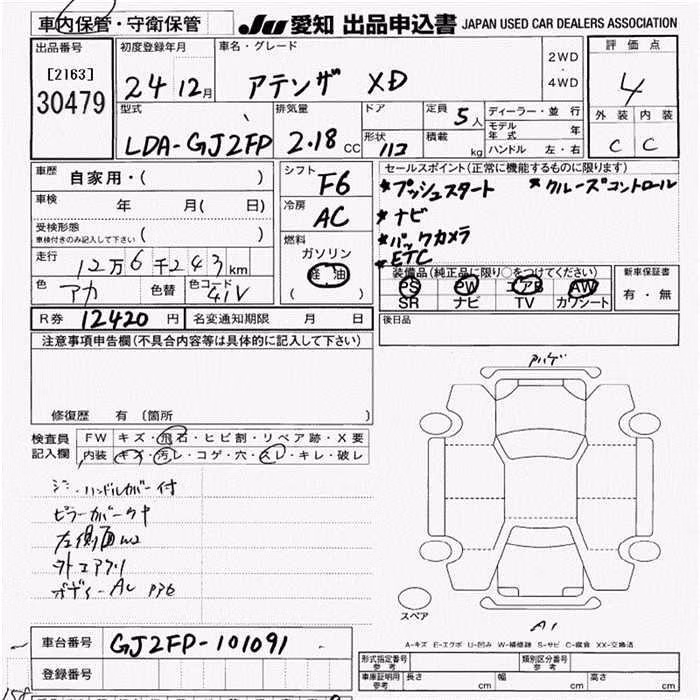 車内保管・守衛保管
JU 愛知 出品申込書 JAPAN USED CAR DEALERS ASSOCIATION
出品番号
[2163]
30479
初度登録年月
24 12月
車名・グレード
アテンザ XD
2WD
・
4WD
評価点
4
外装 内装
C C
型式
LDA-GJ2FP
排気量
2.18 CC
ドア
形状
定員 5人
積載 kg
ディーラー・並行
モデル年式 年
ハンドル 左・右
車歴 自家用・( )
車検 年 月( 日)
受検形態
車検付きのみ記入して下さい ( )
走行 12万6千243km
色 アカ 色替 色コード 41V
シフト F6
冷房 AC
燃料
ガソリン
軽油
( )
セールスポイント(正常に機能するものに限ります)
*プッシュスタート *クルーズコントロール
*ナビ
*バックカメラ
*ETC
装備品(純正品に限り○をつけてください)
PS PW エアB AW
SR ナビ TV カワシート
新車保証書
有・無
R券 12420円 名変通知期限 月 日
後日品
注意事項申告欄(不具合内容等は具体的に記入して下さい)
修復歴 有 〔箇所 〕
検査員
記入欄
FW キズ・飛石・ヒビ割・リペア跡・X要
内装 キズ・汚レ・コゲ・穴・スレ・キレ・破レ
ハンドルカバー付
左側面W2
外エアロ
スペア
A1
A-キズ E-エクボ U-凹み W-補修跡 S-サビ C-腐食 XX-交換済
車台番号 GJ2FP-101091
登録番号
形式指定番号
参考
類別区分番号
参考
車庫証明用
参考
長さ cm 幅 cm 高さ cm